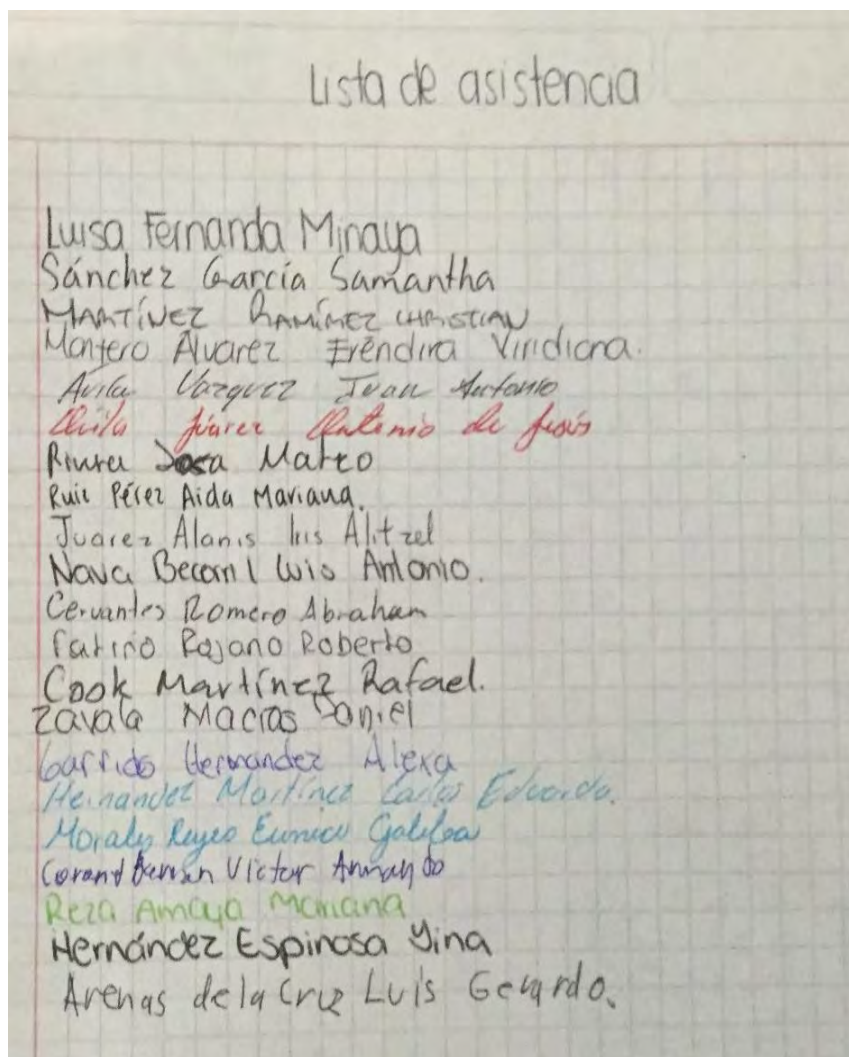 Lista de asistencia
Luisa Fernanda Minaya
Sánchez García Samantha
MARTÍNEZ RAMÍREZ CHRISTIAN
Montero Álvarez Eréndira Viridiana.
Avila Vazquez Juan Antonio
Avila Júarez Antonio de Jesús
Rivera Mateo
Ruiz Pérez Aida Mariana.
Juarez Alanis Iris Alitzel
Nava Becerril Luis Antonio.
Cervantes Romero Abraham
Patiño Roberto
Cook Martínez Rafael.
Zavala Macías Daniel
Garrido Hernández Alexa
Hernandez Martínez Carlos Eduardo.
Morales Reyes Eunice Galilea
Victor Armando
Reza Amaya Mariana
Hernández Espinosa Yina
Arenas de la Cruz Luis Gerardo.